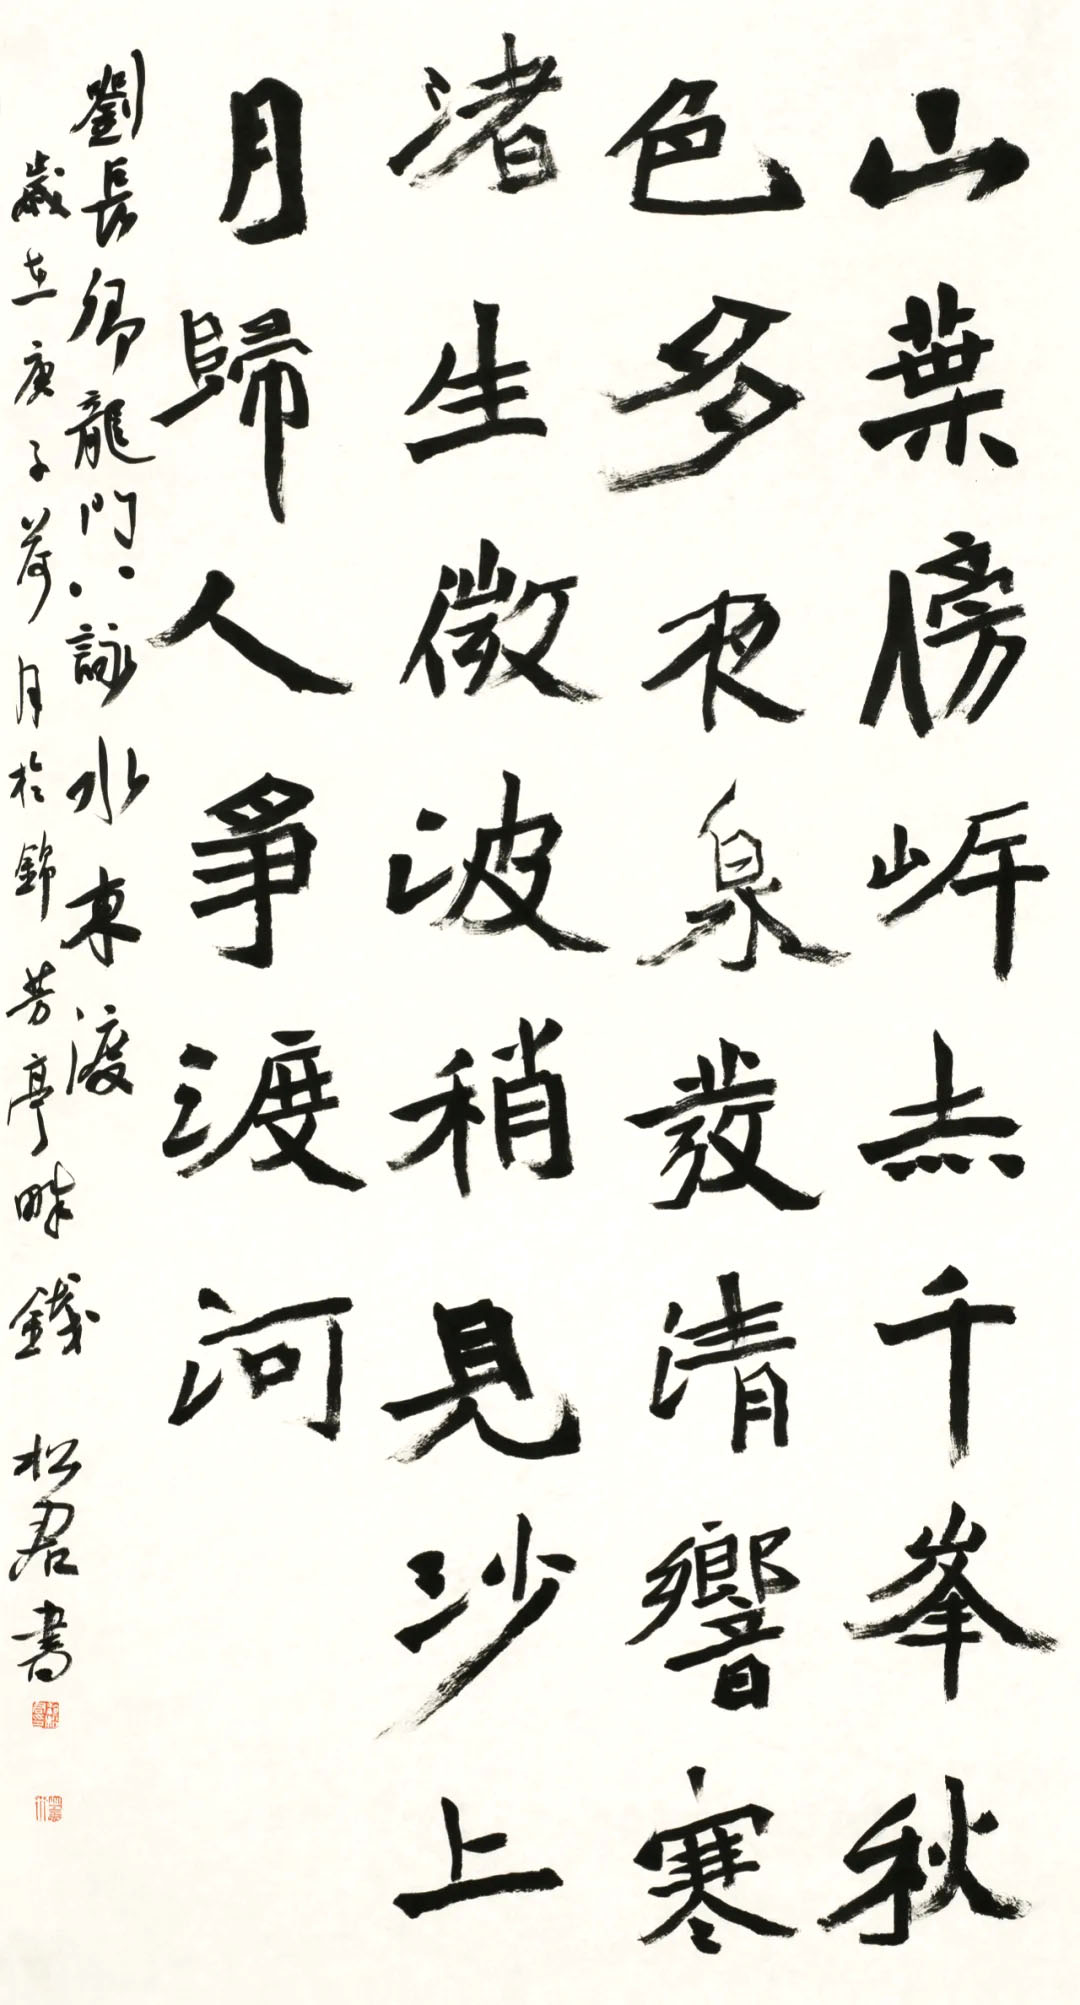 山葉傍岸赤千峯秋
色多夜泉發清響寒
渚生微波稍見沙上
月歸人爭渡河
劉長卿龍門八詠水東渡
歲在庚子荷月於錦芳亭畔錢松君書